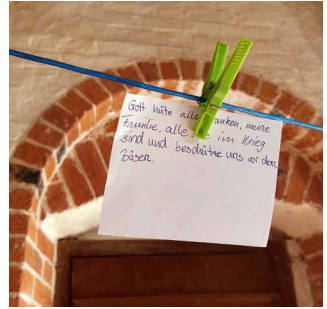 Gott hüte alle anken, meine
Familie, alle im Krieg
sind und beschütze uns vor dem
Bösen.